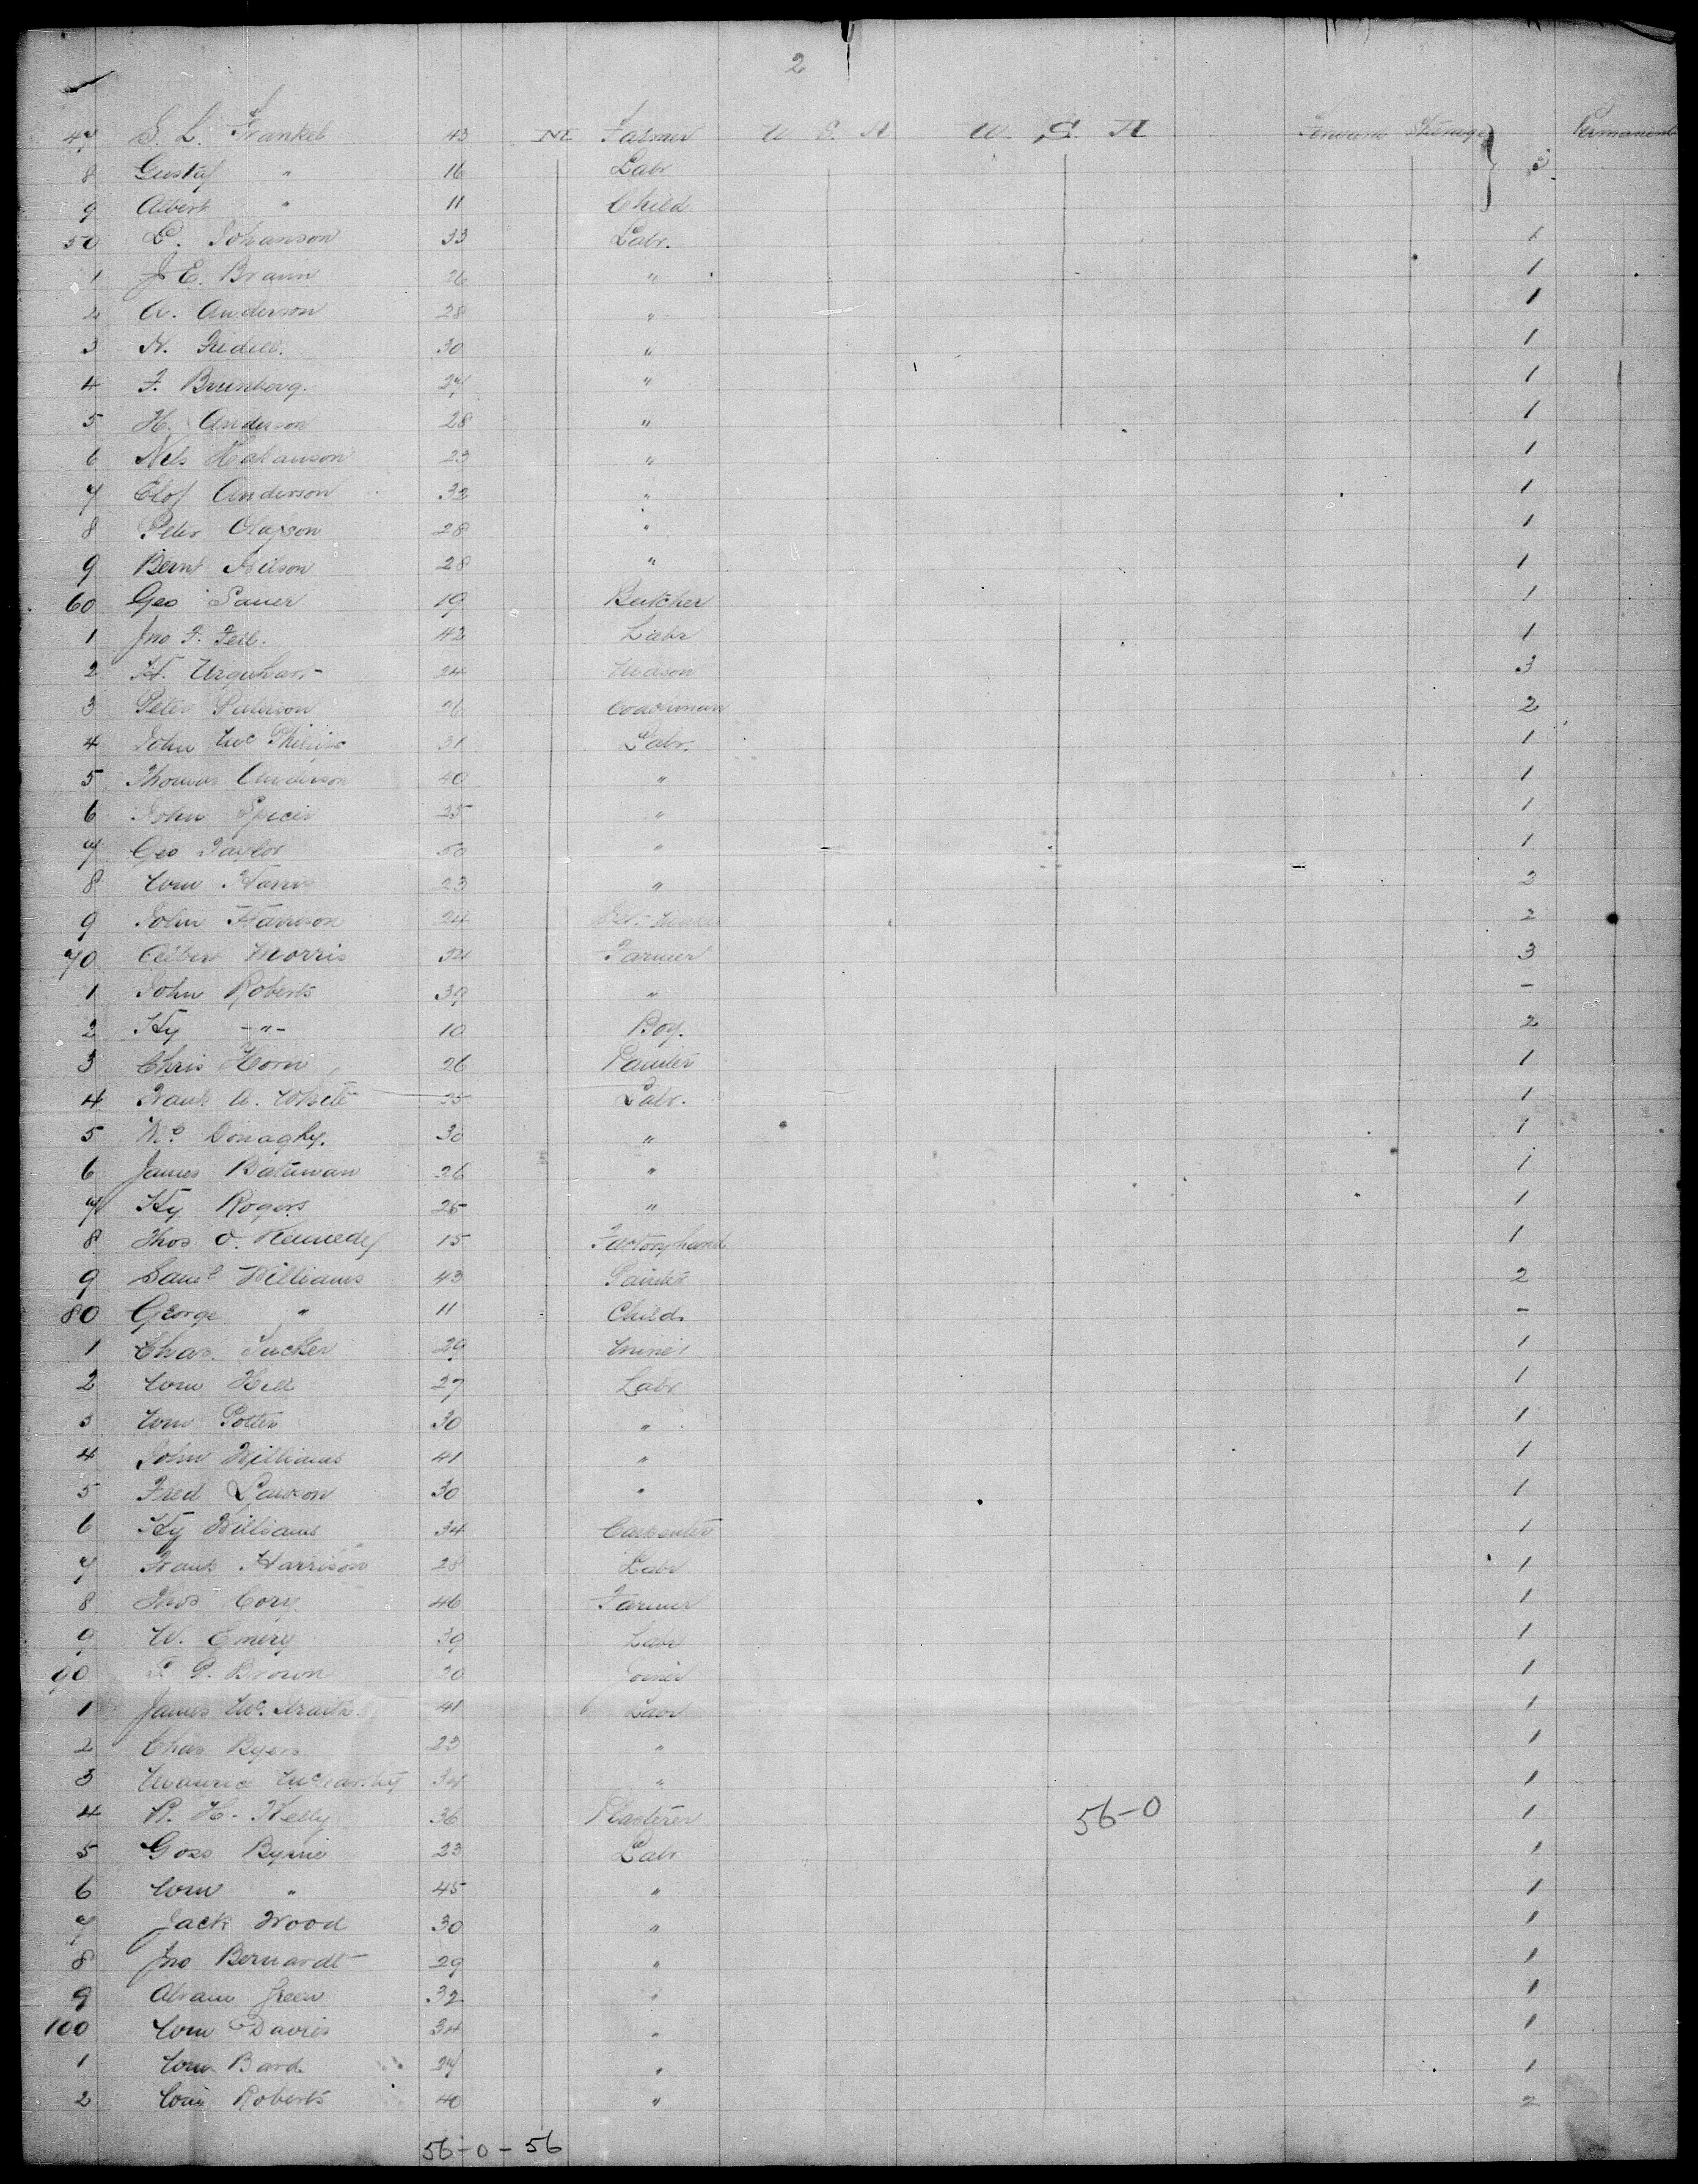 2
47 S. L. Frankel 43 M Farmer U S A U. S. A Forward Steerage Permanent
8 Gustaf " 16 Labr 3
9 Albert " 11 Child
50 Johanson 33 Labr. 1
1 J E. Braun 26 " 1
2 A. Anderson 28 " 1
3 N. 30 " 1
4 F. Brunberg. 27 " 1
5 H. Anderson 28 " 1
6 Nels Hakanson 23 " 1
7 Elof Anderson 32 " 1
8 Peter Olafson 28 " 1
9 Bernt Nilson 28 " 1
60 Geo Sauer 19 Butcher 1
1 Jno F. Feil. 42 Labr 1
2 H. Urquhart 24 Mason 3
3 Peter Paterson 26 Coachman 2
4 John Mc 31 Labr. 1
5 Thomas Anderson 40 " 1
6 John Spicer 25 " 1
7 Geo Taylor 50 " 1
8 Wm Harris 23 " 2
9 John Harrison 24 2
70 Albert Morris 34 Farmer 3
1 John Roberts 39 " -
2 Hy -"- 10 Boy. 2
3 Chris Horn 26 Painter 1
4 Frank A. White 25 Labr. 1
5 Mc Donaghy. 30 " 1
6 James Bateman 26 " 1
7 Hy Rogers 25 " 1
8 Thos O. Kennedy 15 Factoryhand 1
9 Saml Williams 43 Painter 2
80 George " 11 Child -
1 Chas. Tucker 29 Miner 1
2 Wm Hill 27 Labr 1
3 Wm Potter 30 " 1
4 John Williams 41 " 1
5 Fred Lawson 30 " 1
6 Hy Williams 34 Carpenter 1
7 Frank Harrison 28 Labr 1
8 Thos Cory 46 Farmer 1
9 W. Emery 39 Labr 1
90 P. Brown 30 Joiner 1
1 James Mc. 41 Labr 1
2 Chas Byers 23 " 1
3 Maurice McCarthy 34 " 1
4 R. H. Kelly 36 Plasterer 56-0 1
5 Goss Byrne 23 Labr 1
6 Wm " 45 " 1
7 Jack Wood 30 " 1
8 Jno Bernardt 29 " 1
9 Abram Green 32 " 1
100 Wm Davies 34 " 1
1 Wm Bard. 27 " 1
2 Wm Roberts 40 " 2
56-0-56